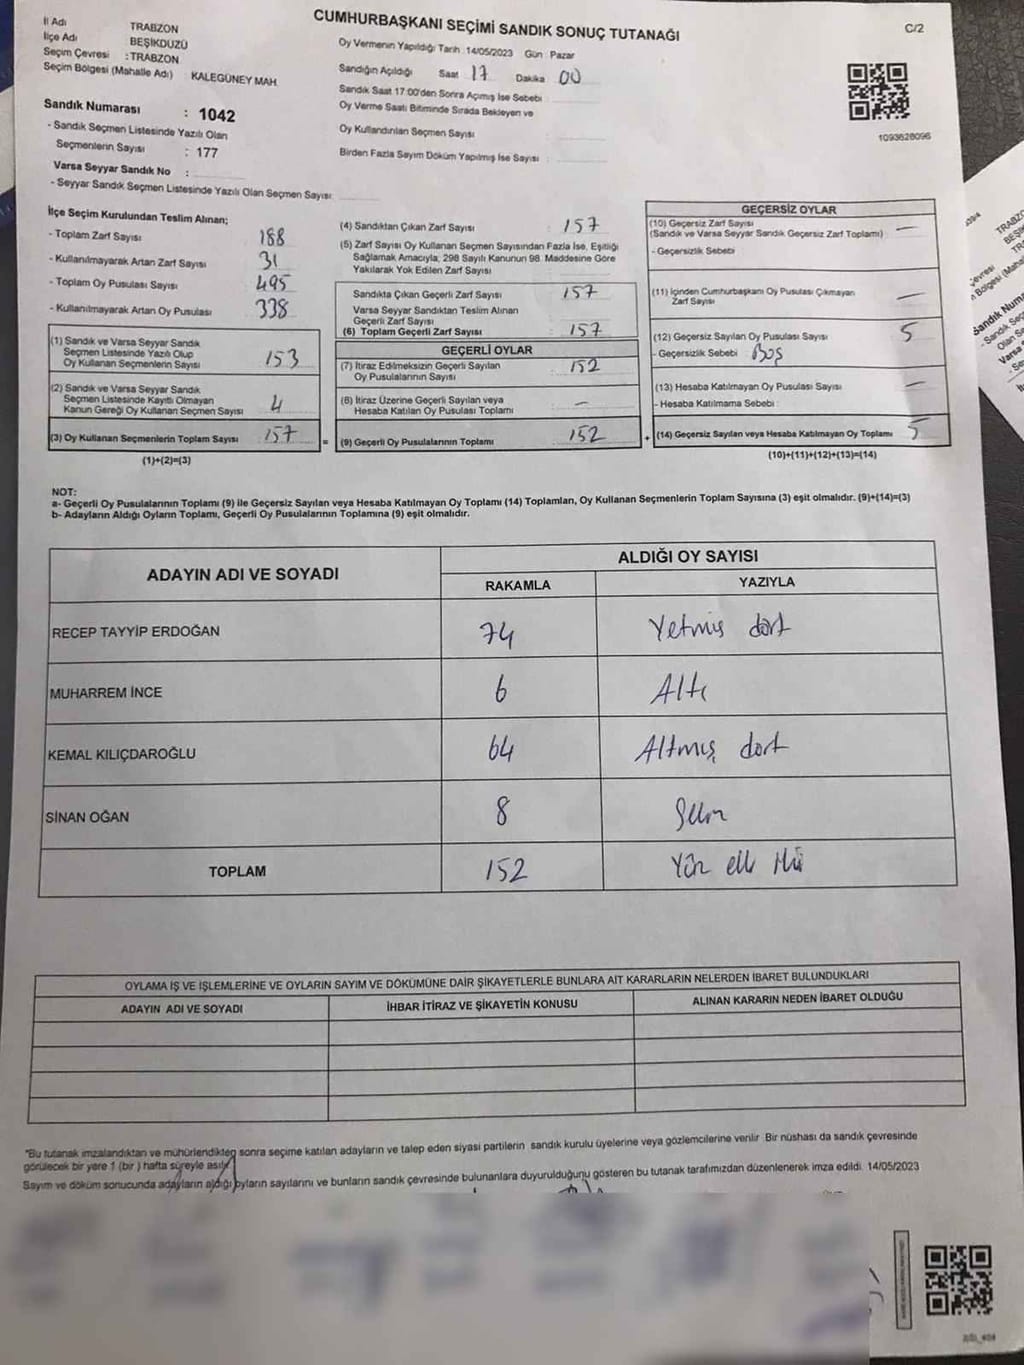 CUMHURBAŞKANI SEÇİMİ SANDIK SONUÇ TUTANAĞI
C/2
İl Adı TRABZON
İlçe Adı BEŞİKDÜZÜ
Seçim Çevresi : TRABZON
Seçim Bölgesi (Mahalle Adı) KALEGÜNEY MAH.
Sandık Numarası : 1042
- Sandık Seçmen Listesinde Yazılı Olan
Seçmenlerin Sayısı : 177
Varsa Seyyar Sandık No :
- Seyyar Sandık Seçmen Listesinde Yazılı Olan Seçmen Sayısı:
Oy Vermenin Yapıldığı Tarih :14/05/2023 Gün : Pazar
Sandığın Açıldığı Saat 17 Dakika 00
Sandık Saat 17:00'den Sonra Açımış İse Sebebi :
Oy Verme Saati Bitiminde Sırada Bekleyen ve
Oy Kullandırılan Seçmen Sayısı :
Birden Fazla Sayım Döküm Yapılmış İse Sayısı :
1093628096
İlçe Seçim Kurulundan Teslim Alınan;
- Toplam Zarf Sayısı 188
- Kullanılmayarak Artan Zarf Sayısı 31
- Toplam Oy Pusulası Sayısı 495
- Kullanılmayarak Artan Oy Pusulası 338
(1) Sandık ve Varsa Seyyar Sandık
Seçmen Listesinde Yazılı Olup
Oy Kullanan Seçmenlerin Sayısı 153
(2) Sandık ve Varsa Seyyar Sandık
Seçmen Listesinde Kayıtlı Olmayan
Kanun Gereği Oy Kullanan Seçmen Sayısı 4
(3) Oy Kullanan Seçmenlerin Toplam Sayısı 157 =
(1)+(2)=(3)
(4) Sandıktan Çıkan Zarf Sayısı : 157
(5) Zarf Sayısı Oy Kullanan Seçmen Sayısından Fazla İse, Eşitliği
Sağlamak Amacıyla, 298 Sayılı Kanunun 98. Maddesine Göre
Yakılarak Yok Edilen Zarf Sayısı :
Sandıkta Çıkan Geçerli Zarf Sayısı : 157
Varsa Seyyar Sandıktan Teslim Alınan
Geçerli Zarf Sayısı :
(6) Toplam Geçerli Zarf Sayısı : 157
GEÇERLİ OYLAR
(7) İtiraz Edilmeksizin Geçerli Sayılan
Oy Pusulalarının Sayısı : 152
(8) İtiraz Üzerine Geçerli Sayılan veya
Hesaba Katılan Oy Pusulası Toplamı : —
(9) Geçerli Oy Pusulalarının Toplamı : 152 +
GEÇERSİZ OYLAR
(10) Geçersiz Zarf Sayısı
(Sandık ve Varsa Seyyar Sandık Geçersiz Zarf Toplamı) : —
- Geçersizlik Sebebi :
(11) İçinden Cumhurbaşkanı Oy Pusulası Çıkmayan
Zarf Sayısı : —
(12) Geçersiz Sayılan Oy Pusulası Sayısı : 5
- Geçersizlik Sebebi : Boş
(13) Hesaba Katılmayan Oy Pusulası Sayısı : —
- Hesaba Katılmama Sebebi :
(14) Geçersiz Sayılan veya Hesaba Katılmayan Oy Toplamı : 5
(10)+(11)+(12)+(13)=(14)
NOT:
a- Geçerli Oy Pusulalarının Toplamı (9) ile Geçersiz Sayılan veya Hesaba Katılmayan Oy Toplamı (14) Toplamları, Oy Kullanan Seçmenlerin Toplam Sayısına (3) eşit olmalıdır. (9)+(14)=(3)
b- Adayların Aldığı Oyların Toplamı, Geçerli Oy Pusulalarının Toplamına (9) eşit olmalıdır.
ADAYIN ADI VE SOYADI
ALDIĞI OY SAYISI
RAKAMLA YAZIYLA
RECEP TAYYİP ERDOĞAN 74 Yetmiş dört
MUHARREM İNCE 6 Altı
KEMAL KILIÇDAROĞLU 64 Altmış dört
SİNAN OĞAN 8
TOPLAM 152 Yüz elli iki
OYLAMA İŞ VE İŞLEMLERİNE VE OYLARIN SAYIM VE DÖKÜMÜNE DAİR ŞİKAYETLERLE BUNLARA AİT KARARLARIN NELERDEN İBARET BULUNDUKLARI
ADAYIN ADI VE SOYADI İHBAR İTİRAZ VE ŞİKAYETİN KONUSU ALINAN KARARIN NEDEN İBARET OLDUĞU
"Bu tutanak imzalandıktan ve mühürlendikten sonra seçime katılan adayların ve talep eden siyasi partilerin sandık kurulu üyelerine veya gözlemcilerine verilir. Bir nüshası da sandık çevresinde
görülecek bir yere 1 (bir ) hafta süreyle asılır.
Sayım ve döküm sonucunda adayların aldığı oyların sayılarını ve bunların sandık çevresinde bulunanlara duyurulduğunu gösteren bu tutanak tarafımızdan düzenlenerek imza edildi. 14/05/2023